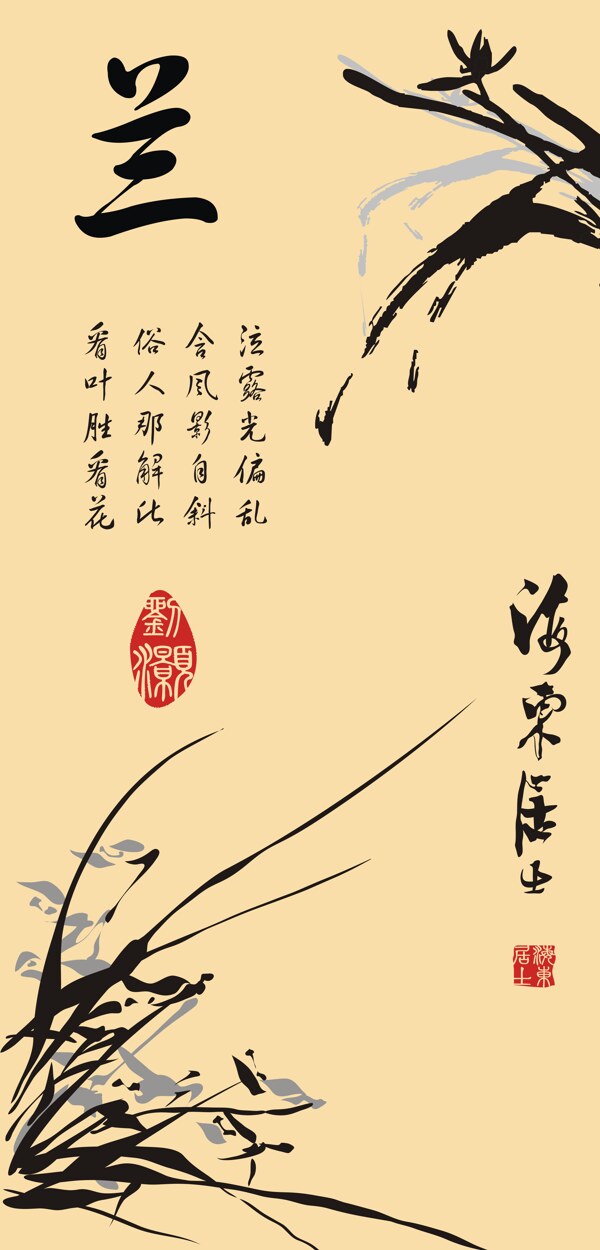 兰
泣露光偏乱
含风影自斜
俗人那解此
看叶胜看花
劉灝
海東居士
海東居士